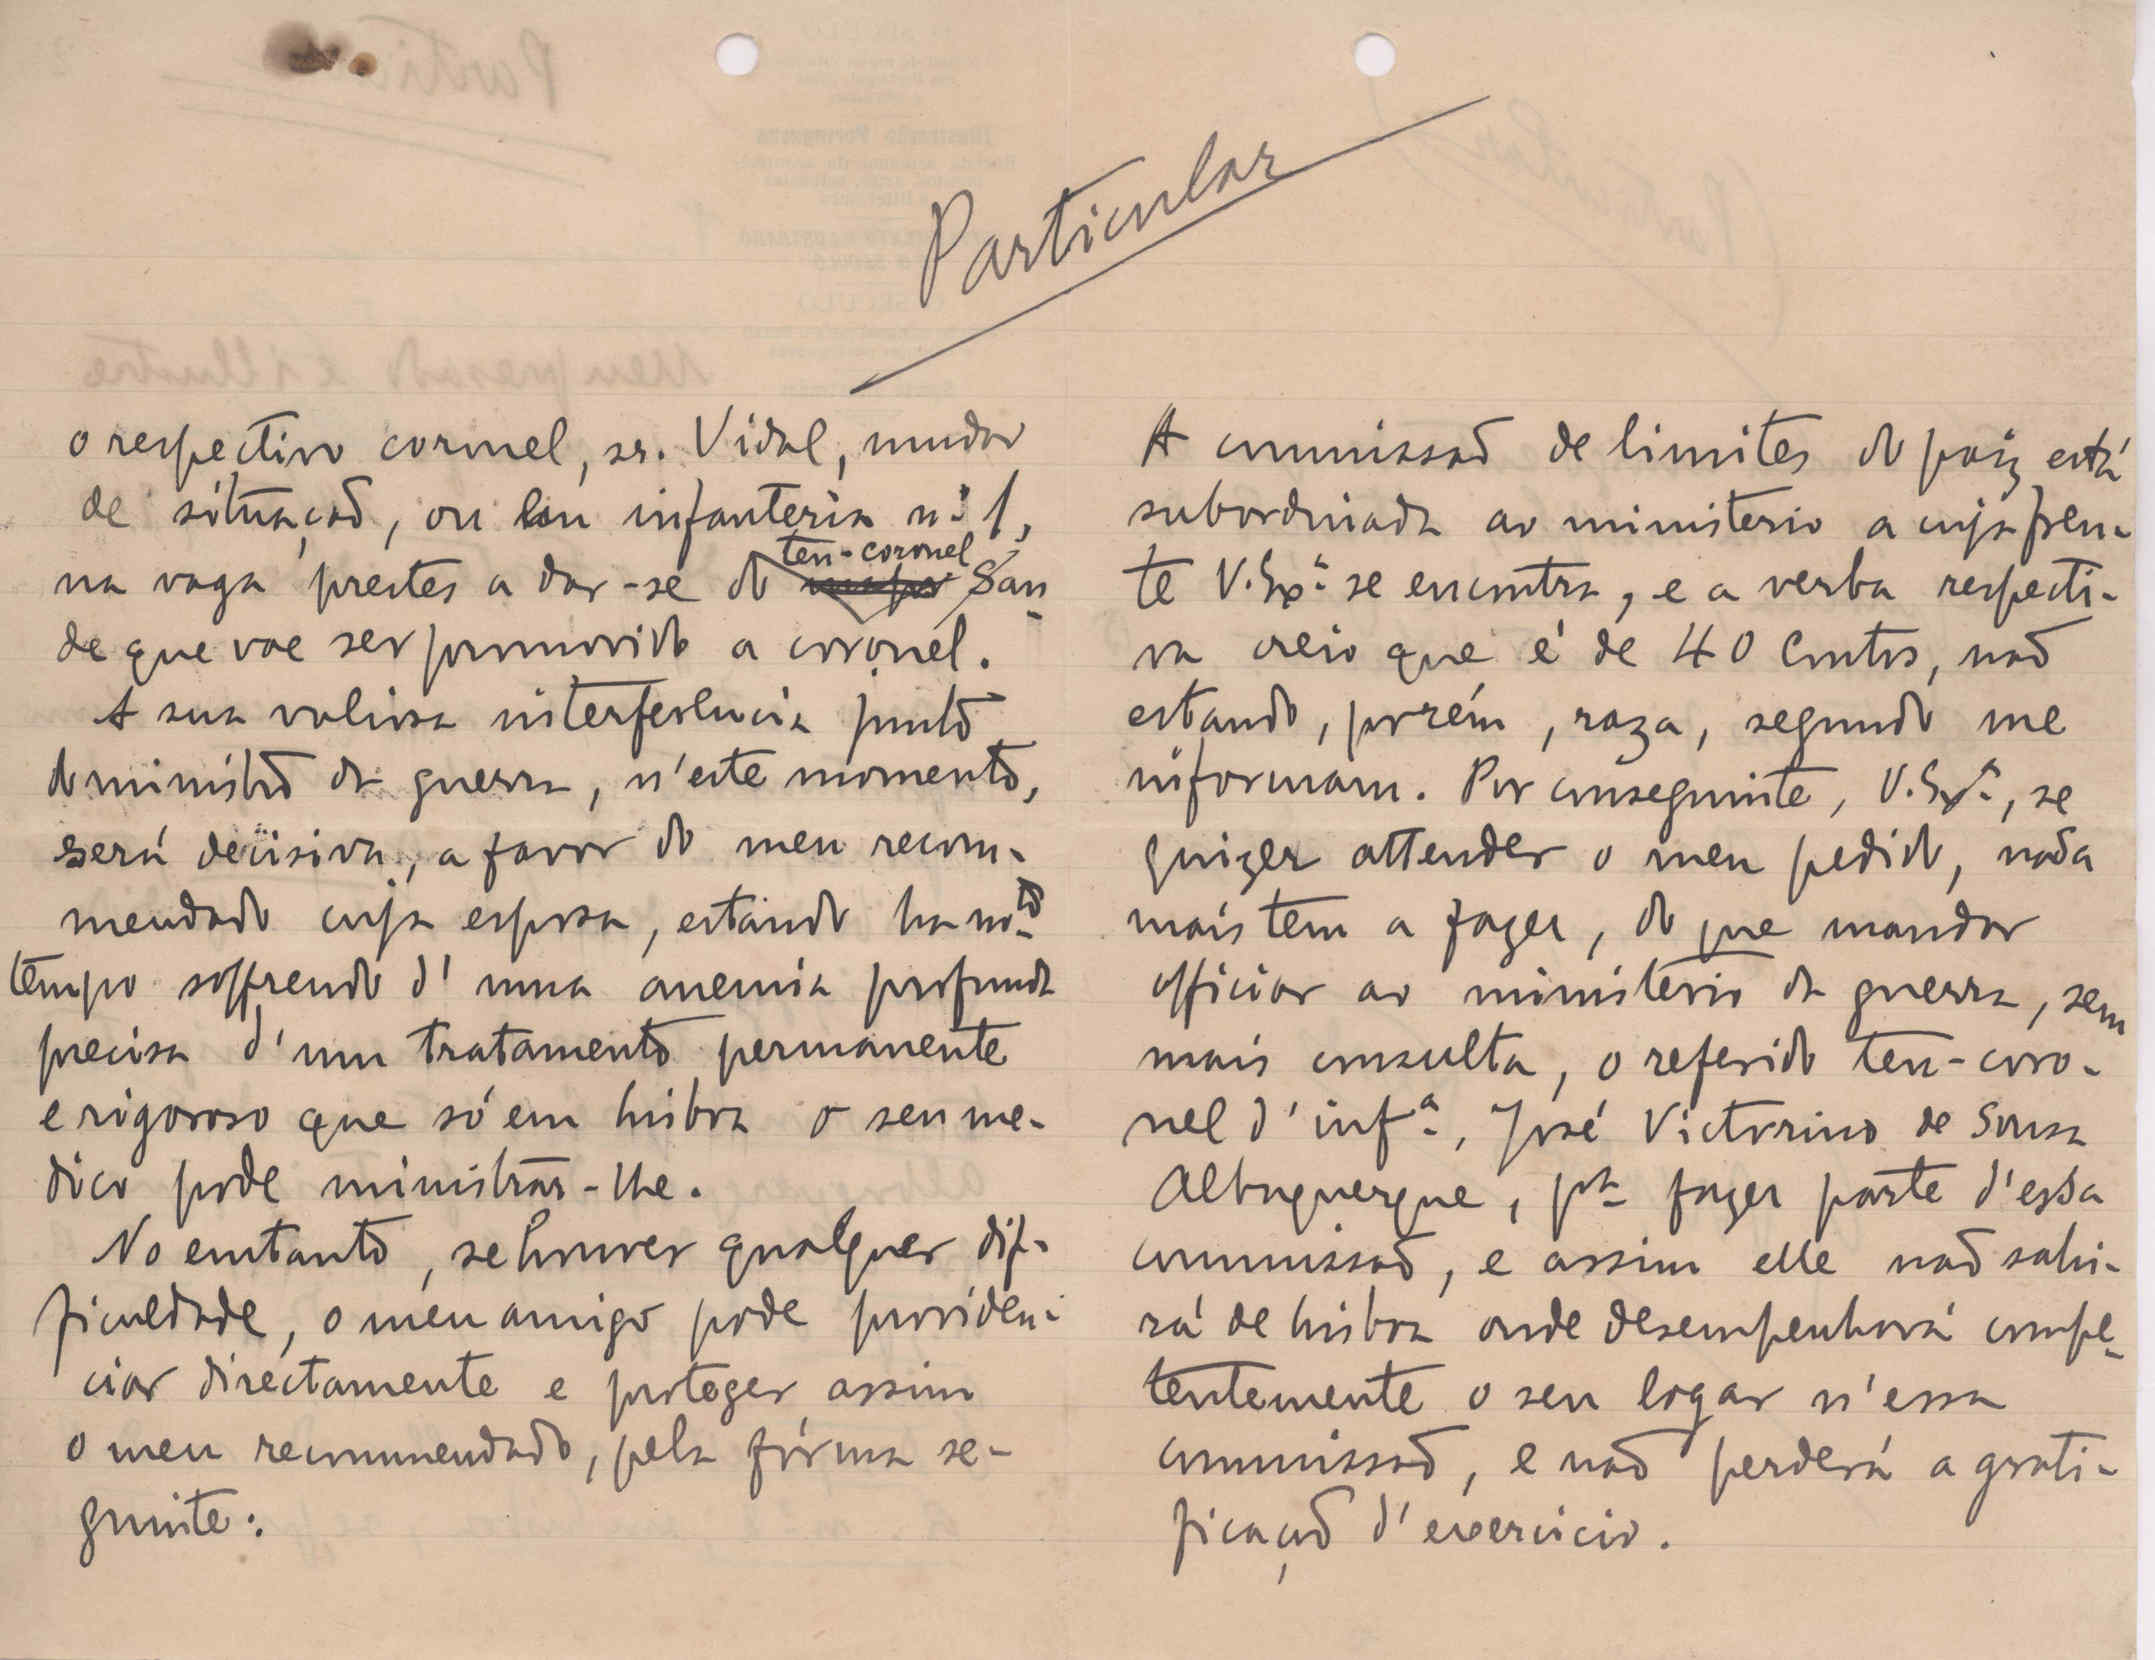 Particular
o respectivo coronel, sr. Vidal, mudar
de situação, ou em infanteria n.º 1,
na vaga prestes a dar-se do ten-coronel San-
de que vae ser promovido a coronel.
A sua valiosa interferencia junto
do ministro da guerra, n'este momento,
será decisiva, a favor do meu recom-
mendado cuja esposa, estando ha m.to
tempo soffrendo d'uma anemia profunda
precisa d'um tratamento permanente
e rigoroso que só em Lisboa o seu me-
dico pode ministrar-lhe.
No emtanto, se houver qualquer dif-
ficuldade, o meu amigo pode providen-
ciar directamente e proteger assim
o meu recommendado, pela fórma se-
guinte:
A commissão de limites do paiz está
subordinada ao ministerio a cuja fren-
te V. Ex.ª se encontra, e a verba respecti-
va creio que é de 40 contos, não
estando, porém, raza, segundo me
informam. Por conseguinte, V. Ex.ª, se
quizer attender o meu pedido, nada
mais tem a fazer, do que mandar
officiar ao ministerio da guerra, sem
mais consulta, o referido ten-coro-
nel d'inf.ª, José Victorino de Sousa
Albuquerque, p.ª fazer parte d'essa
commissão, e assim elle não sahi-
rá de Lisboa onde desempenhará compe-
tentemente o seu logar n'essa
commissão, e não perderá a grati-
ficação d'exercicio.